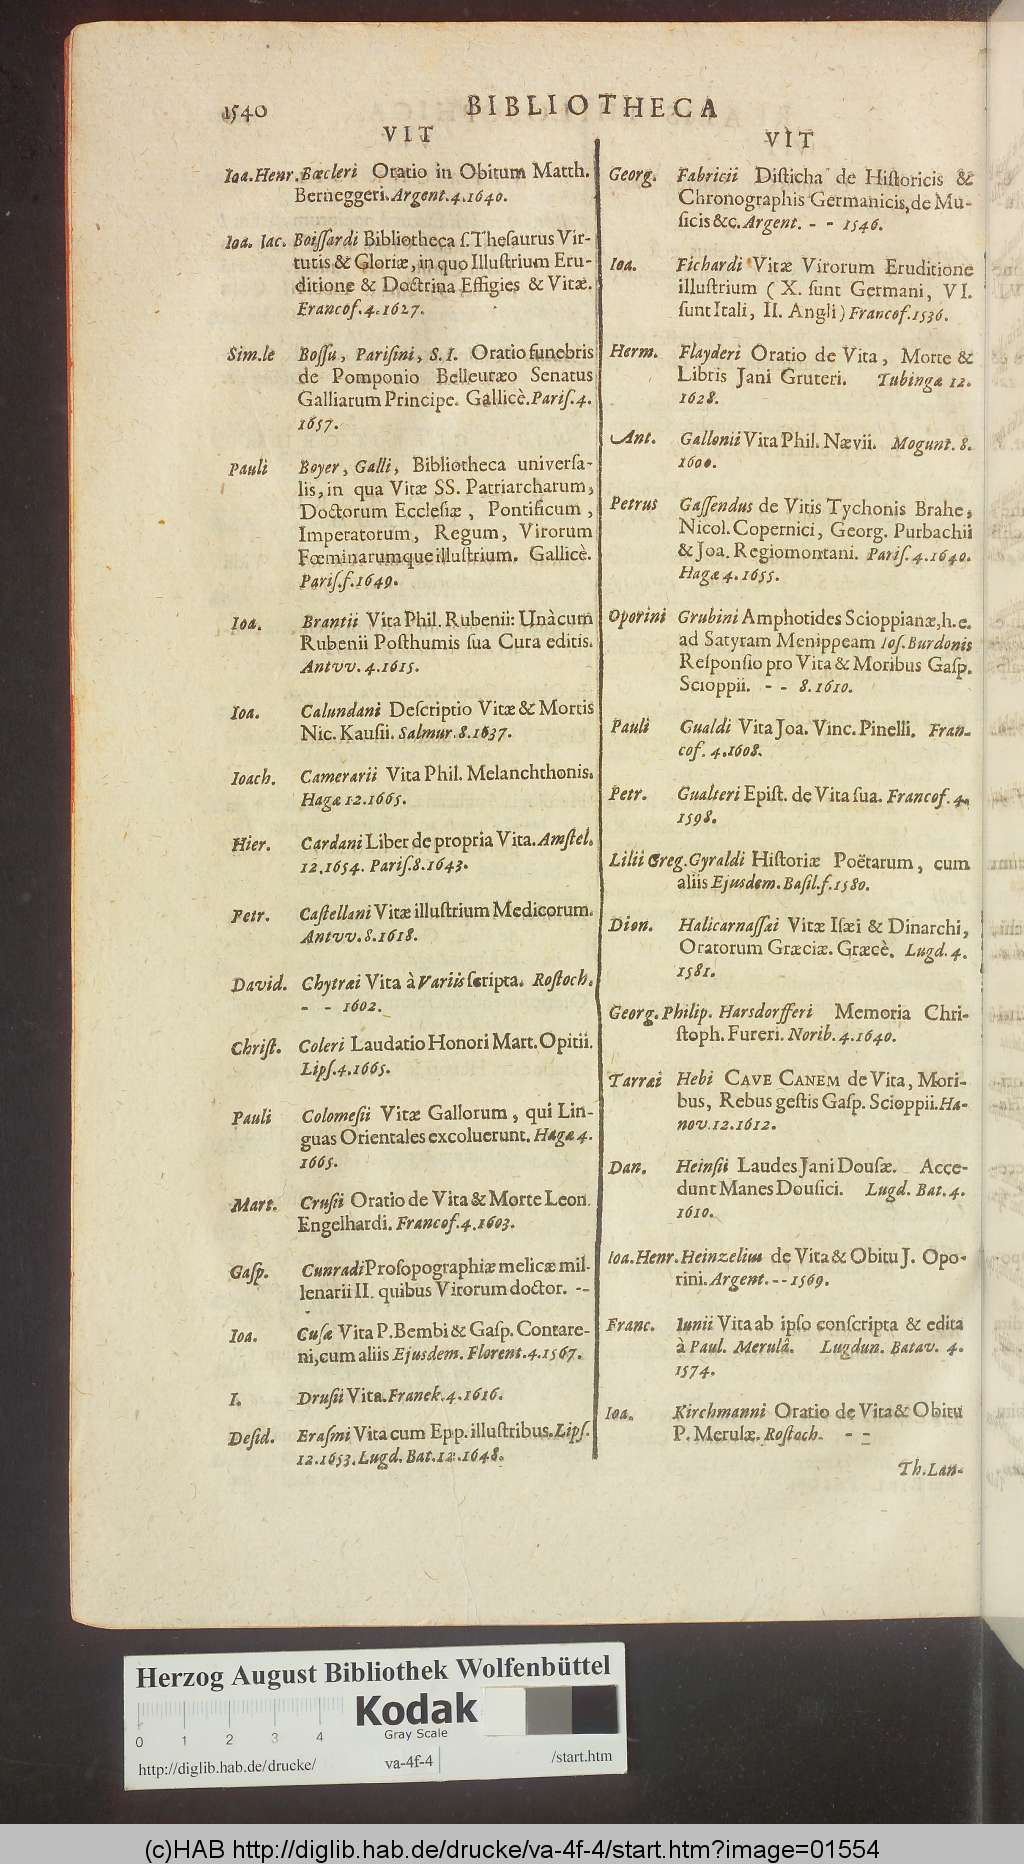 1540 BIBLIOTHECA
VIT
Ioa. Henr. Bœcleri Oratio in Obitum Matth.
Berneggeri. Argent. 4. 1640.
Ioa. Iac. Boiſſardi Bibliotheca ſ. Theſaurus Vir-
tutis & Gloriæ, in quo Illuſtrium Eru-
ditione & Doctrina Effigies & Vitæ.
Francof. 4. 1627.
Sim. le Boſſu, Pariſini, S. I. Oratio funebris
de Pomponio Belleuræo Senatus
Galliarum Principe. Gallicè. Pariſ. 4.
1657.
Pauli Boyer, Galli, Bibliotheca univerſa-
lis, in qua Vitæ SS. Patriarcharum,
Doctorum Eccleſiæ, Pontificum,
Imperatorum, Regum, Virorum
Fœminarumque illuſtrium. Gallicè.
Pariſ. f. 1649.
Ioa. Brantii Vita Phil. Rubenii: Unàcum
Rubenii Poſthumis ſua Cura editis.
Antvv. 4. 1615.
Ioa. Calundani Deſcriptio Vitæ & Mortis
Nic. Kauſii. Salmur. 8. 1637.
Ioach. Camerarii Vita Phil. Melanchthonis.
Hagæ 12. 1665.
Hier. Cardani Liber de propria Vita. Amſtel.
12. 1654. Pariſ. 8. 1643.
Petr. Caſtellani Vitæ illuſtrium Medicorum.
Antvv. 8. 1618.
David. Chytræi Vita à Variis ſcripta. Roſtoch.
- - 1602.
Chriſt. Coleri Laudatio Honori Mart. Opitii.
Lipſ. 4. 1665.
Pauli Colomeſii Vitæ Gallorum, qui Lin-
guas Orientales excoluerunt. Hagæ 4.
1665.
Mart. Cruſii Oratio de Vita & Morte Leon.
Engelhardi. Francof. 4. 1603.
Gaſp. Cunradi Proſopographiæ melicæ mil-
lenarii II. quibus Virorum doctor. --
Ioa. Caſæ Vita P. Bembi & Gaſp. Contare-
ni, cum aliis Ejusdem. Florent. 4. 1567.
I. Druſii Vita. Franek. 4. 1616.
Deſid. Eraſmi Vita cum Epp. illuſtribus. Lipſ.
12. 1653. Lugd. Bat. 12. 1648.
VIT
Georg. Fabricii Diſticha de Hiſtoricis &
Chronographis Germanicis, de Mu-
ſicis &c. Argent. - - 1546.
Ioa. Fichardi Vitæ Virorum Eruditione
illuſtrium (X. ſunt Germani, VI.
ſunt Itali, II. Angli) Francof. 1536.
Herm. Flayderi Oratio de Vita, Morte &
Libris Jani Gruteri. Tubingæ 12.
1628.
Ant. Gallonii Vita Phil. Nævii. Mogunt. 8.
1600.
Petrus Gaſſendus de Vitis Tychonis Brahe,
Nicol. Copernici, Georg. Purbachii
& Joa. Regiomontani. Pariſ. 4. 1640.
Hagæ 4. 1655.
Oporini Grubini Amphotides Scioppianæ, h. e.
ad Satyram Menippeam Ioſ. Burdonis
Reſponſio pro Vita & Moribus Gaſp.
Scioppii. - - 8. 1610.
Pauli Gualdi Vita Joa. Vinc. Pinelli. Fran-
cof. 4. 1608.
Petr. Gualteri Epiſt. de Vita ſua. Francof. 4.
1598.
Lilii Greg. Gyraldi Hiſtoriæ Poëtarum, cum
aliis Ejusdem. Baſil. f. 1580.
Dion. Halicarnaſſai Vitæ Iſæi & Dinarchi,
Oratorum Græciæ. Græcè. Lugd. 4.
1581.
Georg. Philip. Harsdorfferi Memoria Chri-
ſtoph. Fureri. Norib. 4. 1640.
Tarræi Hebi CAVE CANEM de Vita, Mori-
bus, Rebus geſtis Gaſp. Scioppii. Ha-
nov. 12. 1612.
Dan. Heinſii Laudes Jani Douſæ. Acce-
dunt Manes Douſici. Lugd. Bat. 4.
1610.
Ioa. Henr. Heinzelius de Vita & Obitu J. Opo-
rini. Argent. -- 1569.
Franc. Iunii Vita ab ipſo conſcripta & edita
à Paul. Merulâ. Lugdun. Batav. 4.
1574.
Ioa. Kirchmanni Oratio de Vita & Obitu
P. Merulæ. Roſtoch. - -
Th. Lan-
Herzog August Bibliothek Wolfenbüttel
Kodak
Gray Scale
0 1 2 3 4
http://diglib.hab.de/drucke/ va-4f-4 /start.htm
(c)HAB http://diglib.hab.de/drucke/va-4f-4/start.htm?image=01554